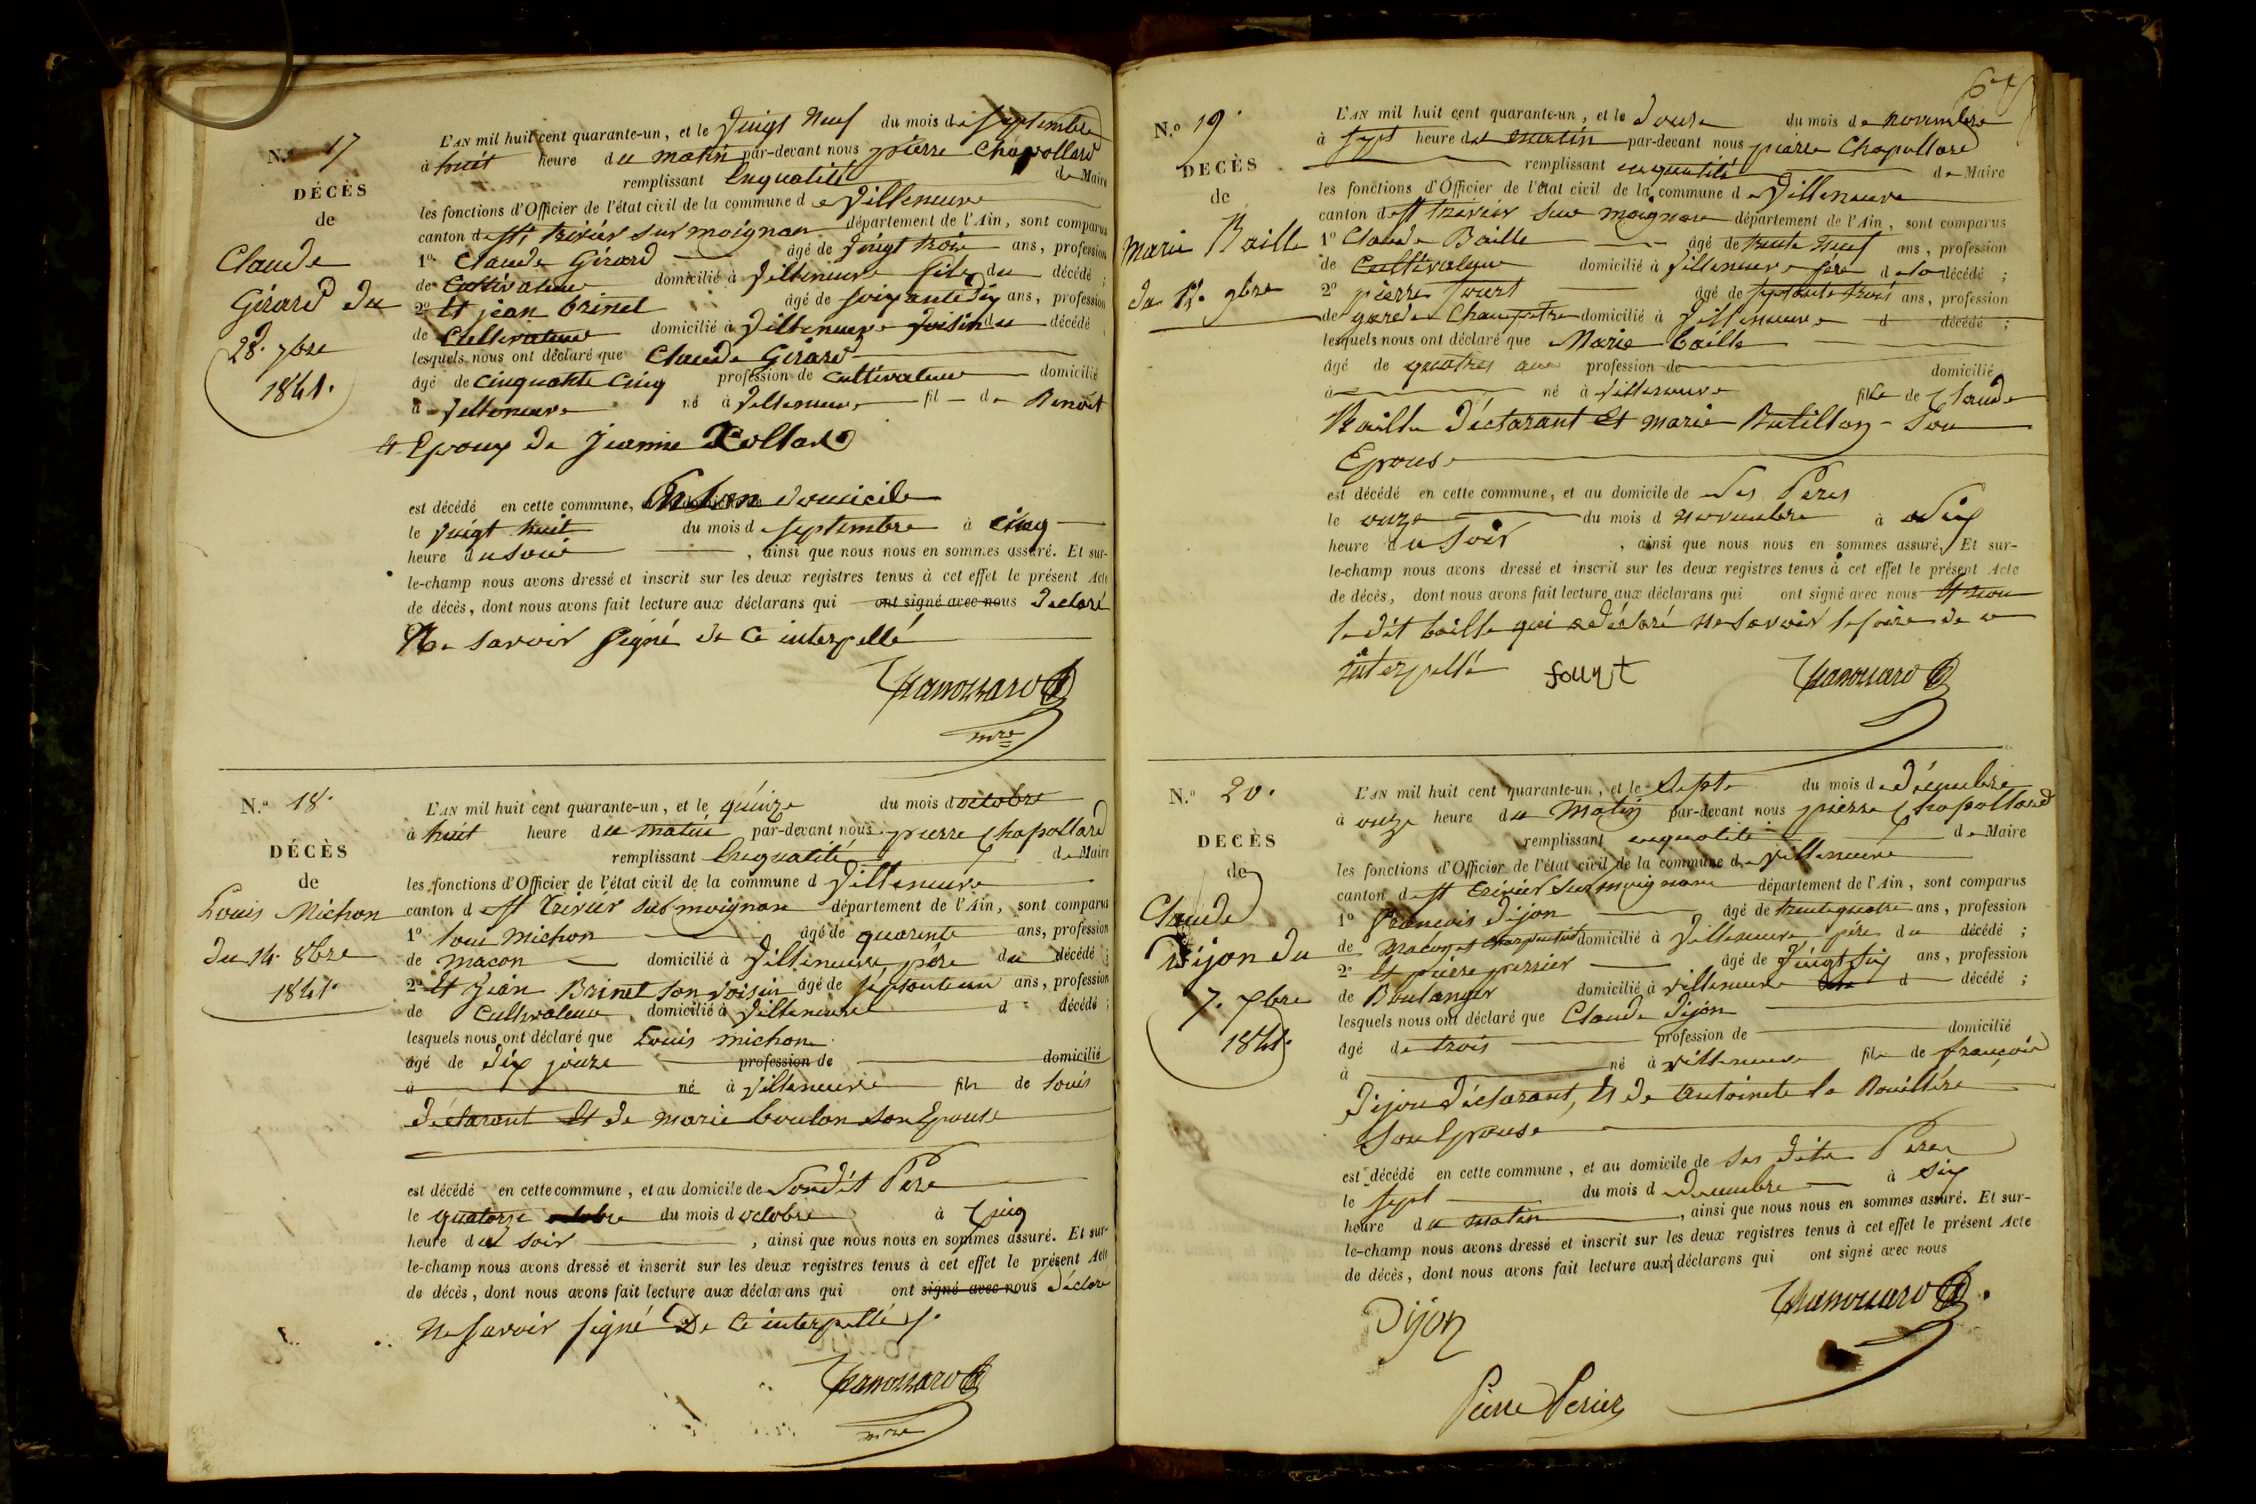 N.º 17
DÉCÈS
de
Claude
Girard du
28. 7bre
1841.
L'AN mil huit cent quarante-un, et le vingt neuf du mois de septembre
à huit heure du matin par-devant nous pierre Chapollard
remplissant en qualité de Maire
les fonctions d'Officier de l'état civil de la commune de Villeneuve
canton de st trivier sur moignan département de l'Ain, sont comparus
1º Claude Girard âgé de vingt trois ans, profession
de Cultivateur domicilié à Villeneuve fils du décédé ;
2º Et jean brinet âgé de soixante dix ans, profession
de Cultivateur domicilié à Villeneuve voisin du décédé
lesquels nous ont déclaré que Claude Girard
âgé de cinquante cinq profession de cultivateur domicilié
à Villeneuve né à Villeneuve fil de Benoit
Epoux de Jeanne Collard
est décédé en cette commune, En Son domicile
le vingt huit du mois de septembre à cinq
heure du soir , ainsi que nous nous en sommes assuré. Et sur-
le-champ nous avons dressé et inscrit sur les deux registres tenus à cet effet le présent Acte
de décès, dont nous avons fait lecture aux déclarans qui ont signé avec nous déclaré
Ne savoir signé de ce interpellé
Chapollard
mre
N.º 18.
DÉCÈS
de
Louis Michon
du 14. 8bre
1841.
L'AN mil huit cent quarante-un, et le quinze du mois d octobre
à huit heure du matin par-devant nous pierre Chapollard
remplissant En qualité de Maire
les fonctions d'Officier de l'état civil de la commune d Villeneuve
canton de st trivier sur moignan département de l'Ain, sont comparus
1º Louis Michon âgé de quarente ans, profession
de macon domicilié à Villeneuve père du décédé ;
2º Et Jean Brinet son voisin âgé de septante un ans, profession
de Cultivateur domicilié à Villeneuve d décédé ;
lesquels nous ont déclaré que Louis michon
âgé de dix jours profession de domicilié
à né à Villeneuve fils de Louis
déclarant Et de marie boulon son Epouse
est décédé en cette commune, et au domicile de Sondit Père
le quatorze octobre du mois d octobre à Cinq
heure du soir , ainsi que nous nous en sommes assuré. Et sur-
le-champ nous avons dressé et inscrit sur les deux registres tenus à cet effet le présent Acte
de décès, dont nous avons fait lecture aux déclarans qui ont signé avec nous déclaré
Ne savoir signé De Ce interpellés.
Chapollard
mre
N.º 19.
DÉCÈS
de
Marie Baille
du 11. 9bre
L'AN mil huit cent quarante-un, et le douze du mois de novembre
à sept heure du matin par-devant nous pierre Chapollard
remplissant en qualité de Maire
les fonctions d'Officier de l'état civil de la commune de Villeneuve
canton de st trivier sur moignan département de l'Ain, sont comparus
1º Claude Baille âgé de trente neuf ans, profession
de Cultivateur domicilié à Villeneuve père de la décédé ;
2º pierre fourt âgé de septante trois ans, profession
de garde Champetre domicilié à Villeneuve d décédé ;
lesquels nous ont déclaré que Marie baille
âgé de quatres ans profession de domicilié
à né à Villeneuve fille de Claude
Baille déclarant Et marie Butillon Son
Epouse
est décédé en cette commune, et au domicile de Ses Peres
le onze du mois d novembre à dix
heure du Soir , ainsi que nous nous en sommes assuré. Et sur-
le-champ nous avons dressé et inscrit sur les deux registres tenus à cet effet le présent Acte
de décès, dont nous avons fait lecture aux déclarans qui ont signé avec nous Et non
le dit baille qui a déclaré Ne Savoir le faire de ce
interpellé fourt Chapollard
N.º 20.
DÉCÈS
de
Claude
Dijon du
7. Xbre
1841.
L'AN mil huit cent quarante-un, et le Sept du mois de décembre
à onze heure du Matin par-devant nous pierre Chapollard
remplissant en qualité de Maire
les fonctions d'Officier de l'état civil de la commune de Villeneuve
canton de st trivier sur moignan département de l'Ain, sont comparus
1º francois dijon âgé de trente quatre ans, profession
de Maçon et charpentier domicilié à Villeneuve père du décédé ;
2º Et pierre perrier âgé de Vingt Six ans, profession
de Boulanger domicilié à Villeneuve d décédé ;
lesquels nous ont déclaré que Claude dijon
âgé de trois profession de domicilié
à né à Villeneuve fils de françois
dijon déclarant, Et de Antoinete la Rouillère
Son Epouse
est décédé en cette commune, et au domicile de Ses dits Peres
le sept du mois d décembre à Six
heure du matin , ainsi que nous nous en sommes assuré. Et sur-
le-champ nous avons dressé et inscrit sur les deux registres tenus à cet effet le présent Acte
de décès, dont nous avons fait lecture aux déclarans qui ont signé avec nous
Dijon Chapollard
Pierre Perier